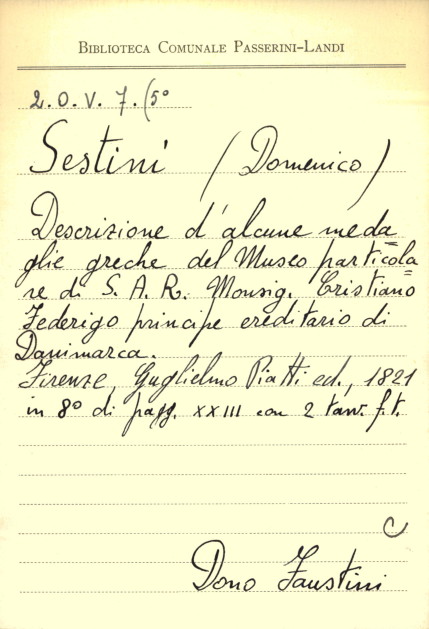 BIBLIOTECA COMUNALE PASSERINI-LANDI
2.O.V. 7. (5°
Sestini (Domenico)
Descrizione d'alcune meda
glie greche del Museo particola=
re di S. A. R. Monsig. Cristiano
Federigo principe ereditario di
Danimarca.
Firenze, Guglielmo Piatti ed., 1821
in 8° di pagg. XXIII con 2 tav. f.t.
C
Dono Faustini